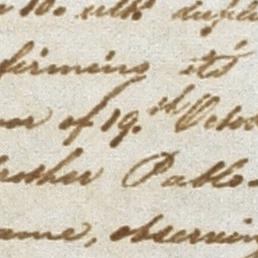 10. ulto. dupli
firming its
of 19.th Octo
brother Pablo
ame, observing